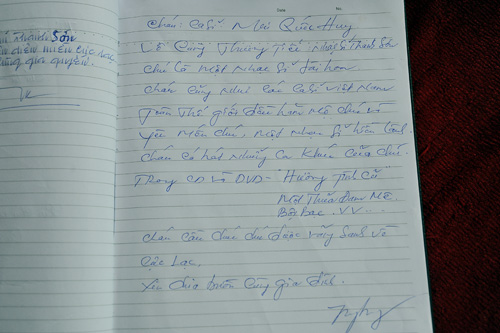 Sơn
Cháu: Ca Sĩ Như Quốc Huy
Về Cùng Thương Tiếc Nhạc Sĩ Thanh Sơn
chú Là một Nhạc Sĩ tài hoa
cháu cũng như các ca sĩ Việt Nam
Trên thế giới đều hâm mộ chú và
yêu mến chú, một nhạc sĩ hiền lành.
Cháu có hát những ca khúc của chú
Trong CD và DVD - "Hương Tình Cũ"
Một Thuở Đam Mê
Bội bạc. VV...
Cháu cầu chú chú được vãng sanh về
Cực Lạc.
Xin chia buồn cùng gia đình.